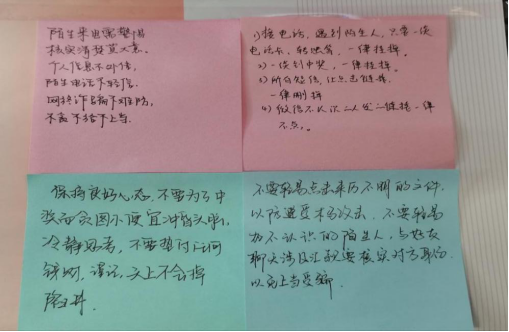 陌生来电需警惕
核实清楚莫大意.
个人信息不外传,
陌生电话不轻信.
网络诈骗不难防,
不贪不给不上当.
1)接电话, 遇到陌生人, 只要一谈
电话卡、转账等, 一律挂掉。
2)一谈到中奖, 一律挂掉。
3)所有短信, 让点击链接,
一律删掉
4)微信不认识二人发二链接一律
不点。
保持良好心态, 不要为了中
奖而贪图小便宜冲昏头脑,
冷静思考, 不要垫付任何
钱财, 谨记, 天上不会掉
陷井.
不要轻易点击来历不明的文件,
以防遭受木马攻击, 不要轻易
加不认识的陌生人, 与好友
聊天涉及汇款要核实对方身份
以免上当受骗.